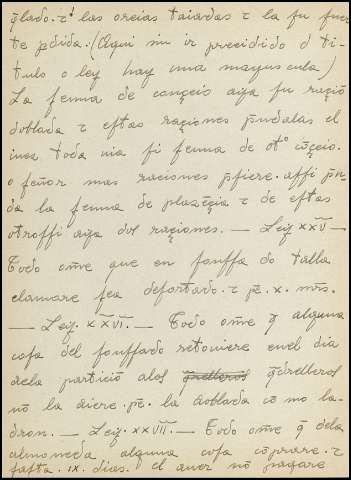 q̃lado. τ° las oreias taiadas τ la su suer
te pdida. (Aqui sin ir precidido d ti-
tulo o ley hay una mayuscula)
La femna de conçeio aya su raçiõ
doblada τ estas raçiones pñdalas el
iuez toda uia si femna de ot° cõçeio.
o señor mas raciones pfiere. assi pñ-
da la femna de
otrossi aya dos raçiones. — Ley XXV —
Todo om̃e que en fonssa do talla
clamare sea desortado. τ pe. X. mrs.
— Ley. XXVI. — Todo om̃e q̃ alguna
cosa del fonssado retouiere enel dia
dela partició alos q̃drelleros
nõ la diere. pe. la doblada cõ mo la-
dron. — Ley. XXVII. — Todo om̃e q̃ dela
almoneda alguna cosa cõprare. τ
fasta. IX. dias. el auer nõ pagare